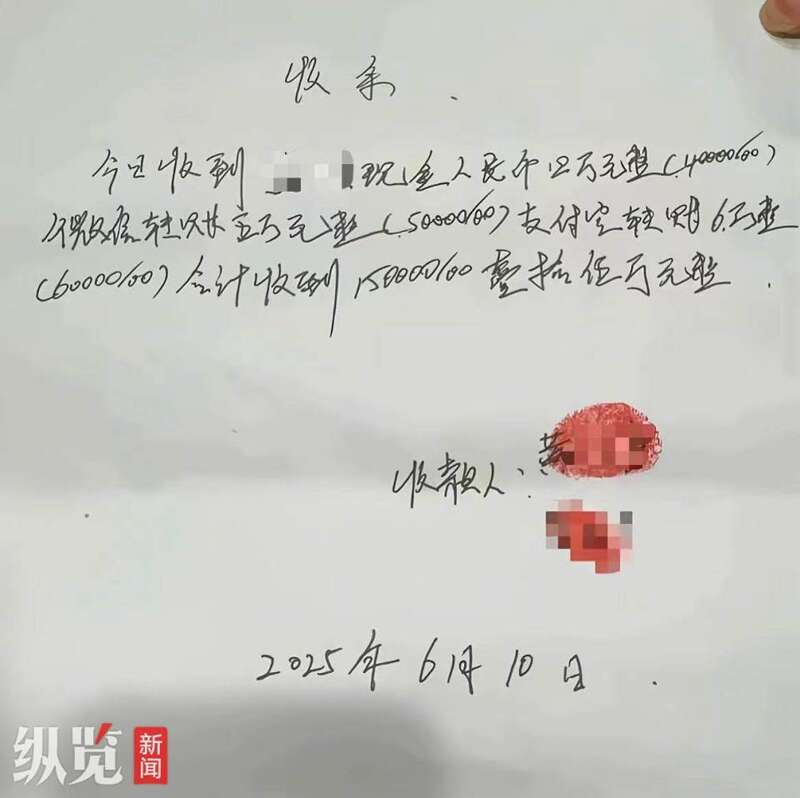 收条.
今日收到 现金人民币四万元整(40000/00)
微信转账五万元整(50000/00)支付宝转账6万整
(60000/00)合计收到150000/00壹拾伍万元整.
收款人:黄
2025年6月10日.
纵览新闻